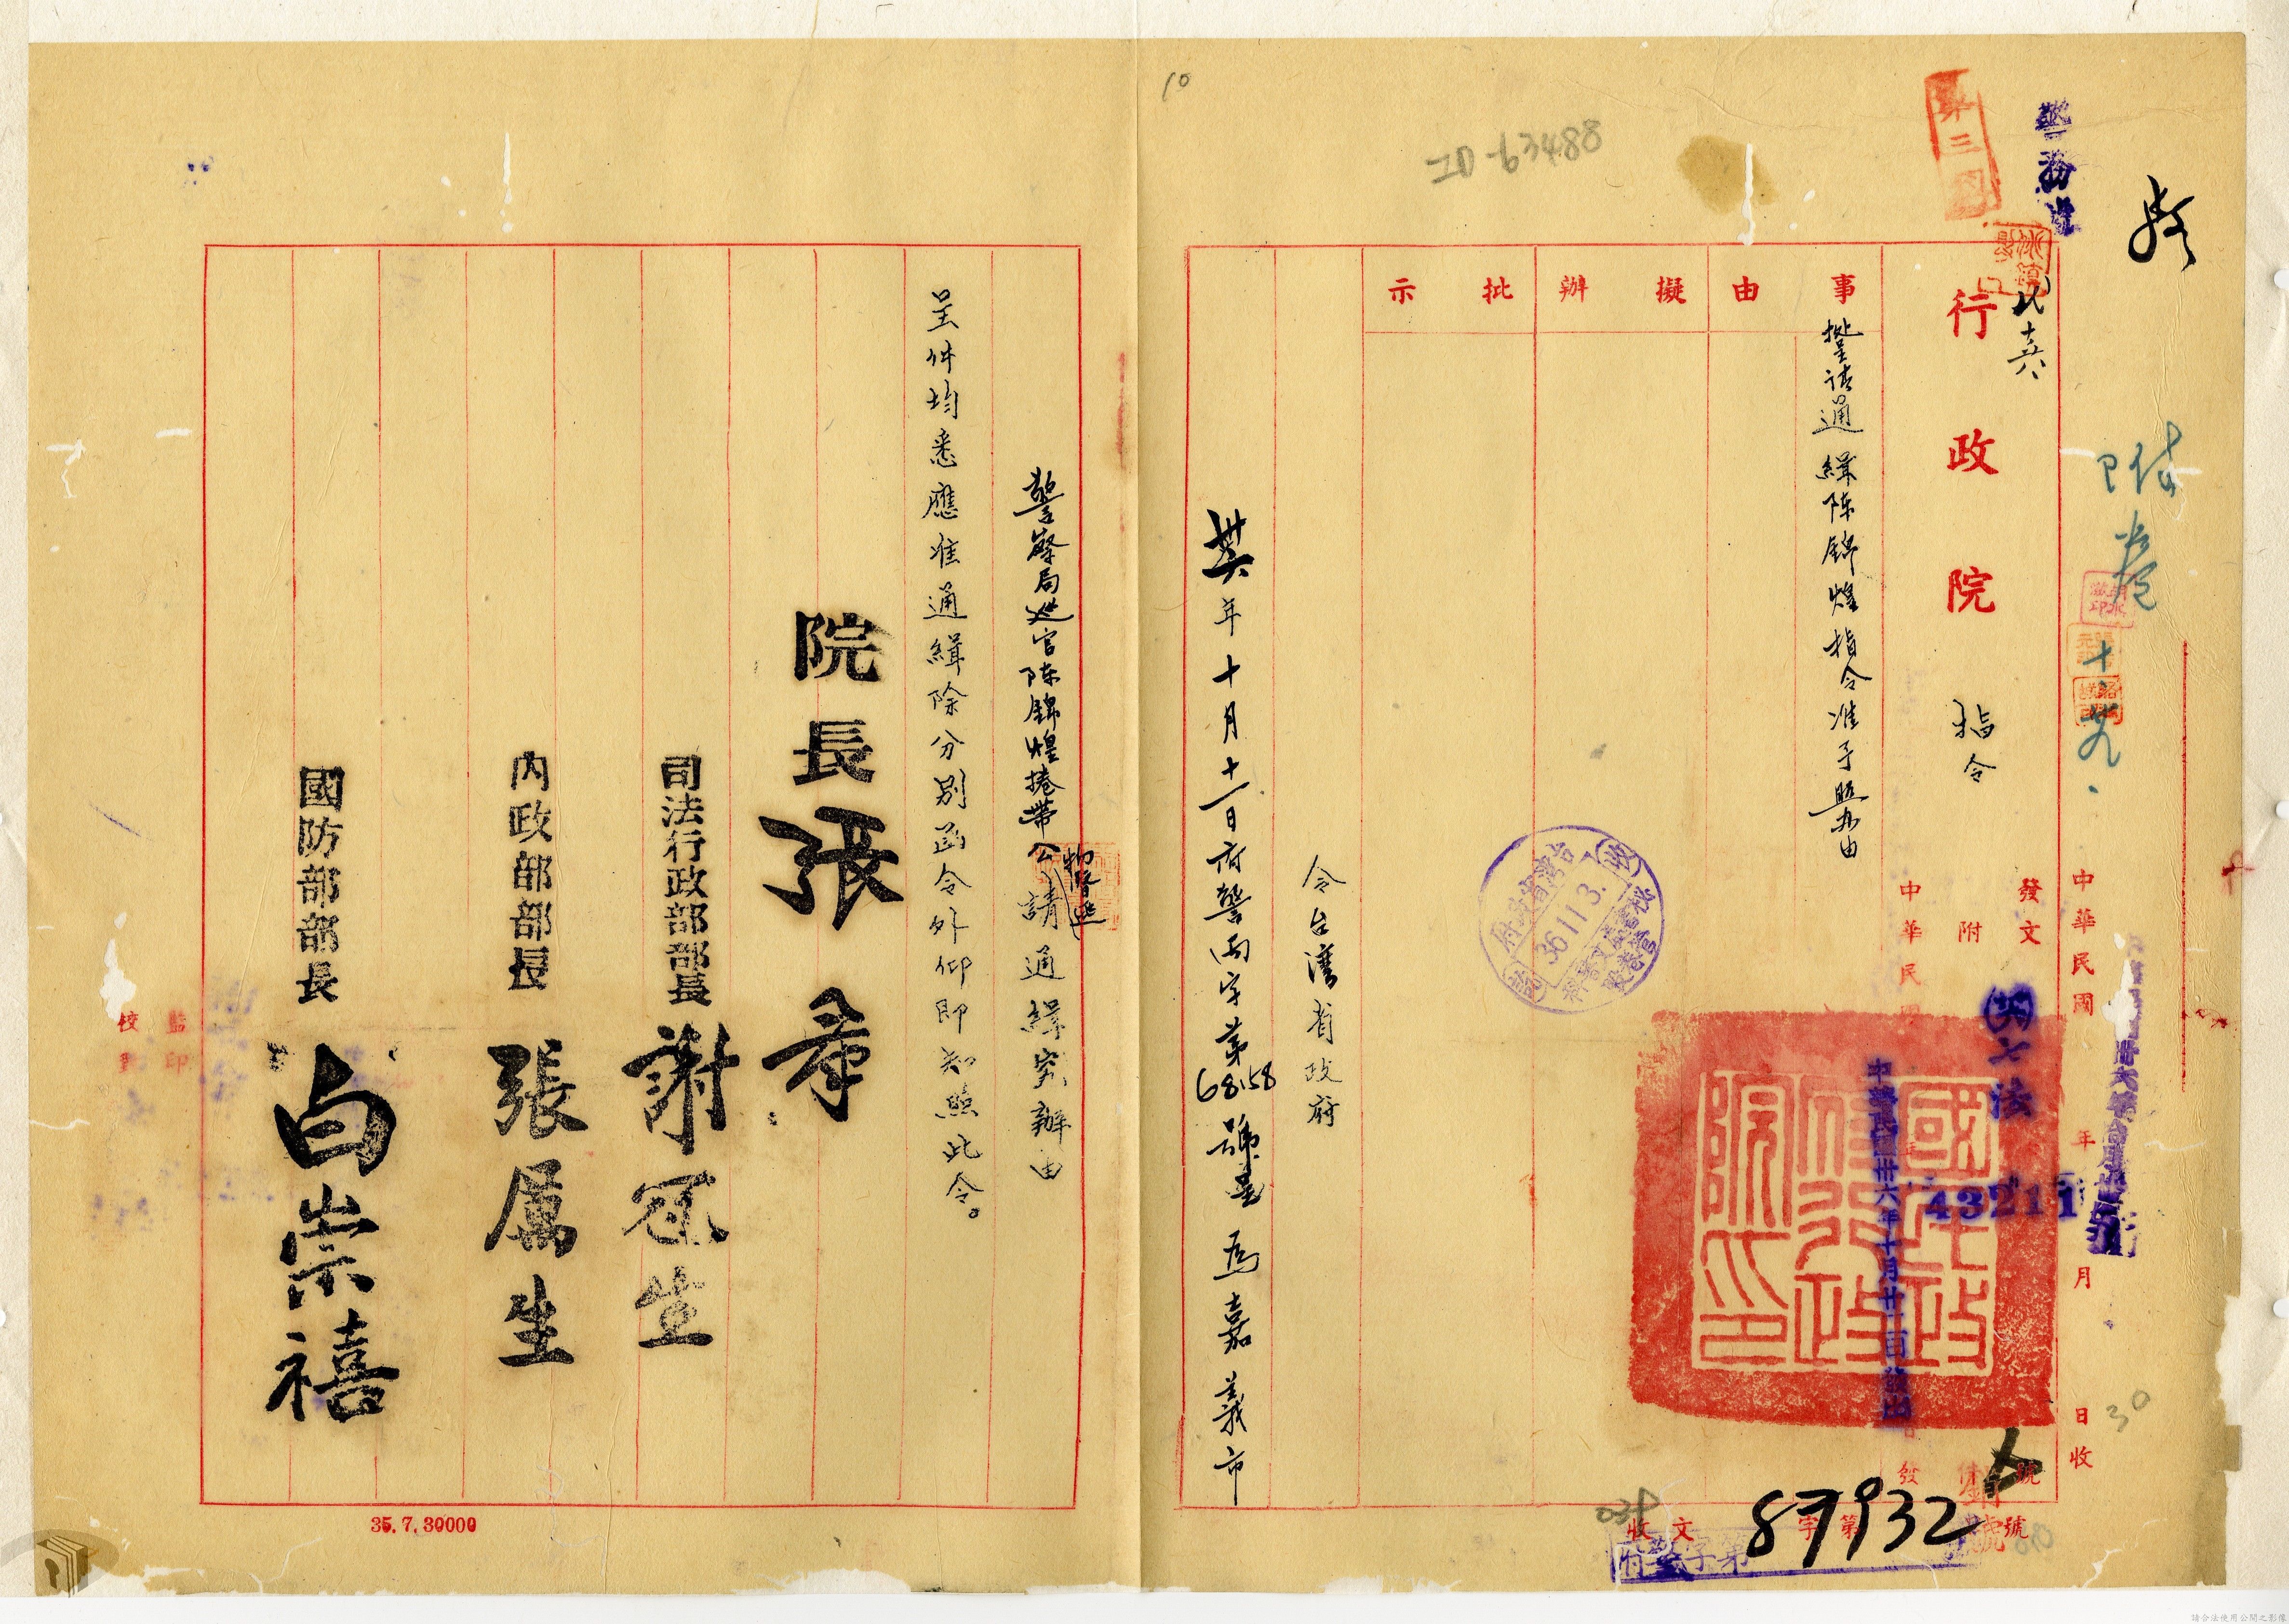 10
ID-63488
警務處
行政院
指令
附卷
十、廿九、
中華民國 年 月 日收
發文
(卅六)七法
43211
號
附
中華民國 年
中華民國卅六年十月廿一日發出
事由
擬辦
批示
據請通緝陳錦煌指令准予照办由
台灣省政府
36.11.3.
令台灣省政府
卅六年十月十一日府警丙字第68158號呈為嘉義市
警察局巡官陳錦煌捲帶公物潛逃請通緝究辦由
呈件均悉應准通緝除分別函令外仰即知照此令。
院長張羣
司法行政部部長謝冠生
內政部部長張厲生
國防部部長白崇禧
監印
校對
35.7.30000
收文 字第 87932 號
30
請合法使用公開之影像